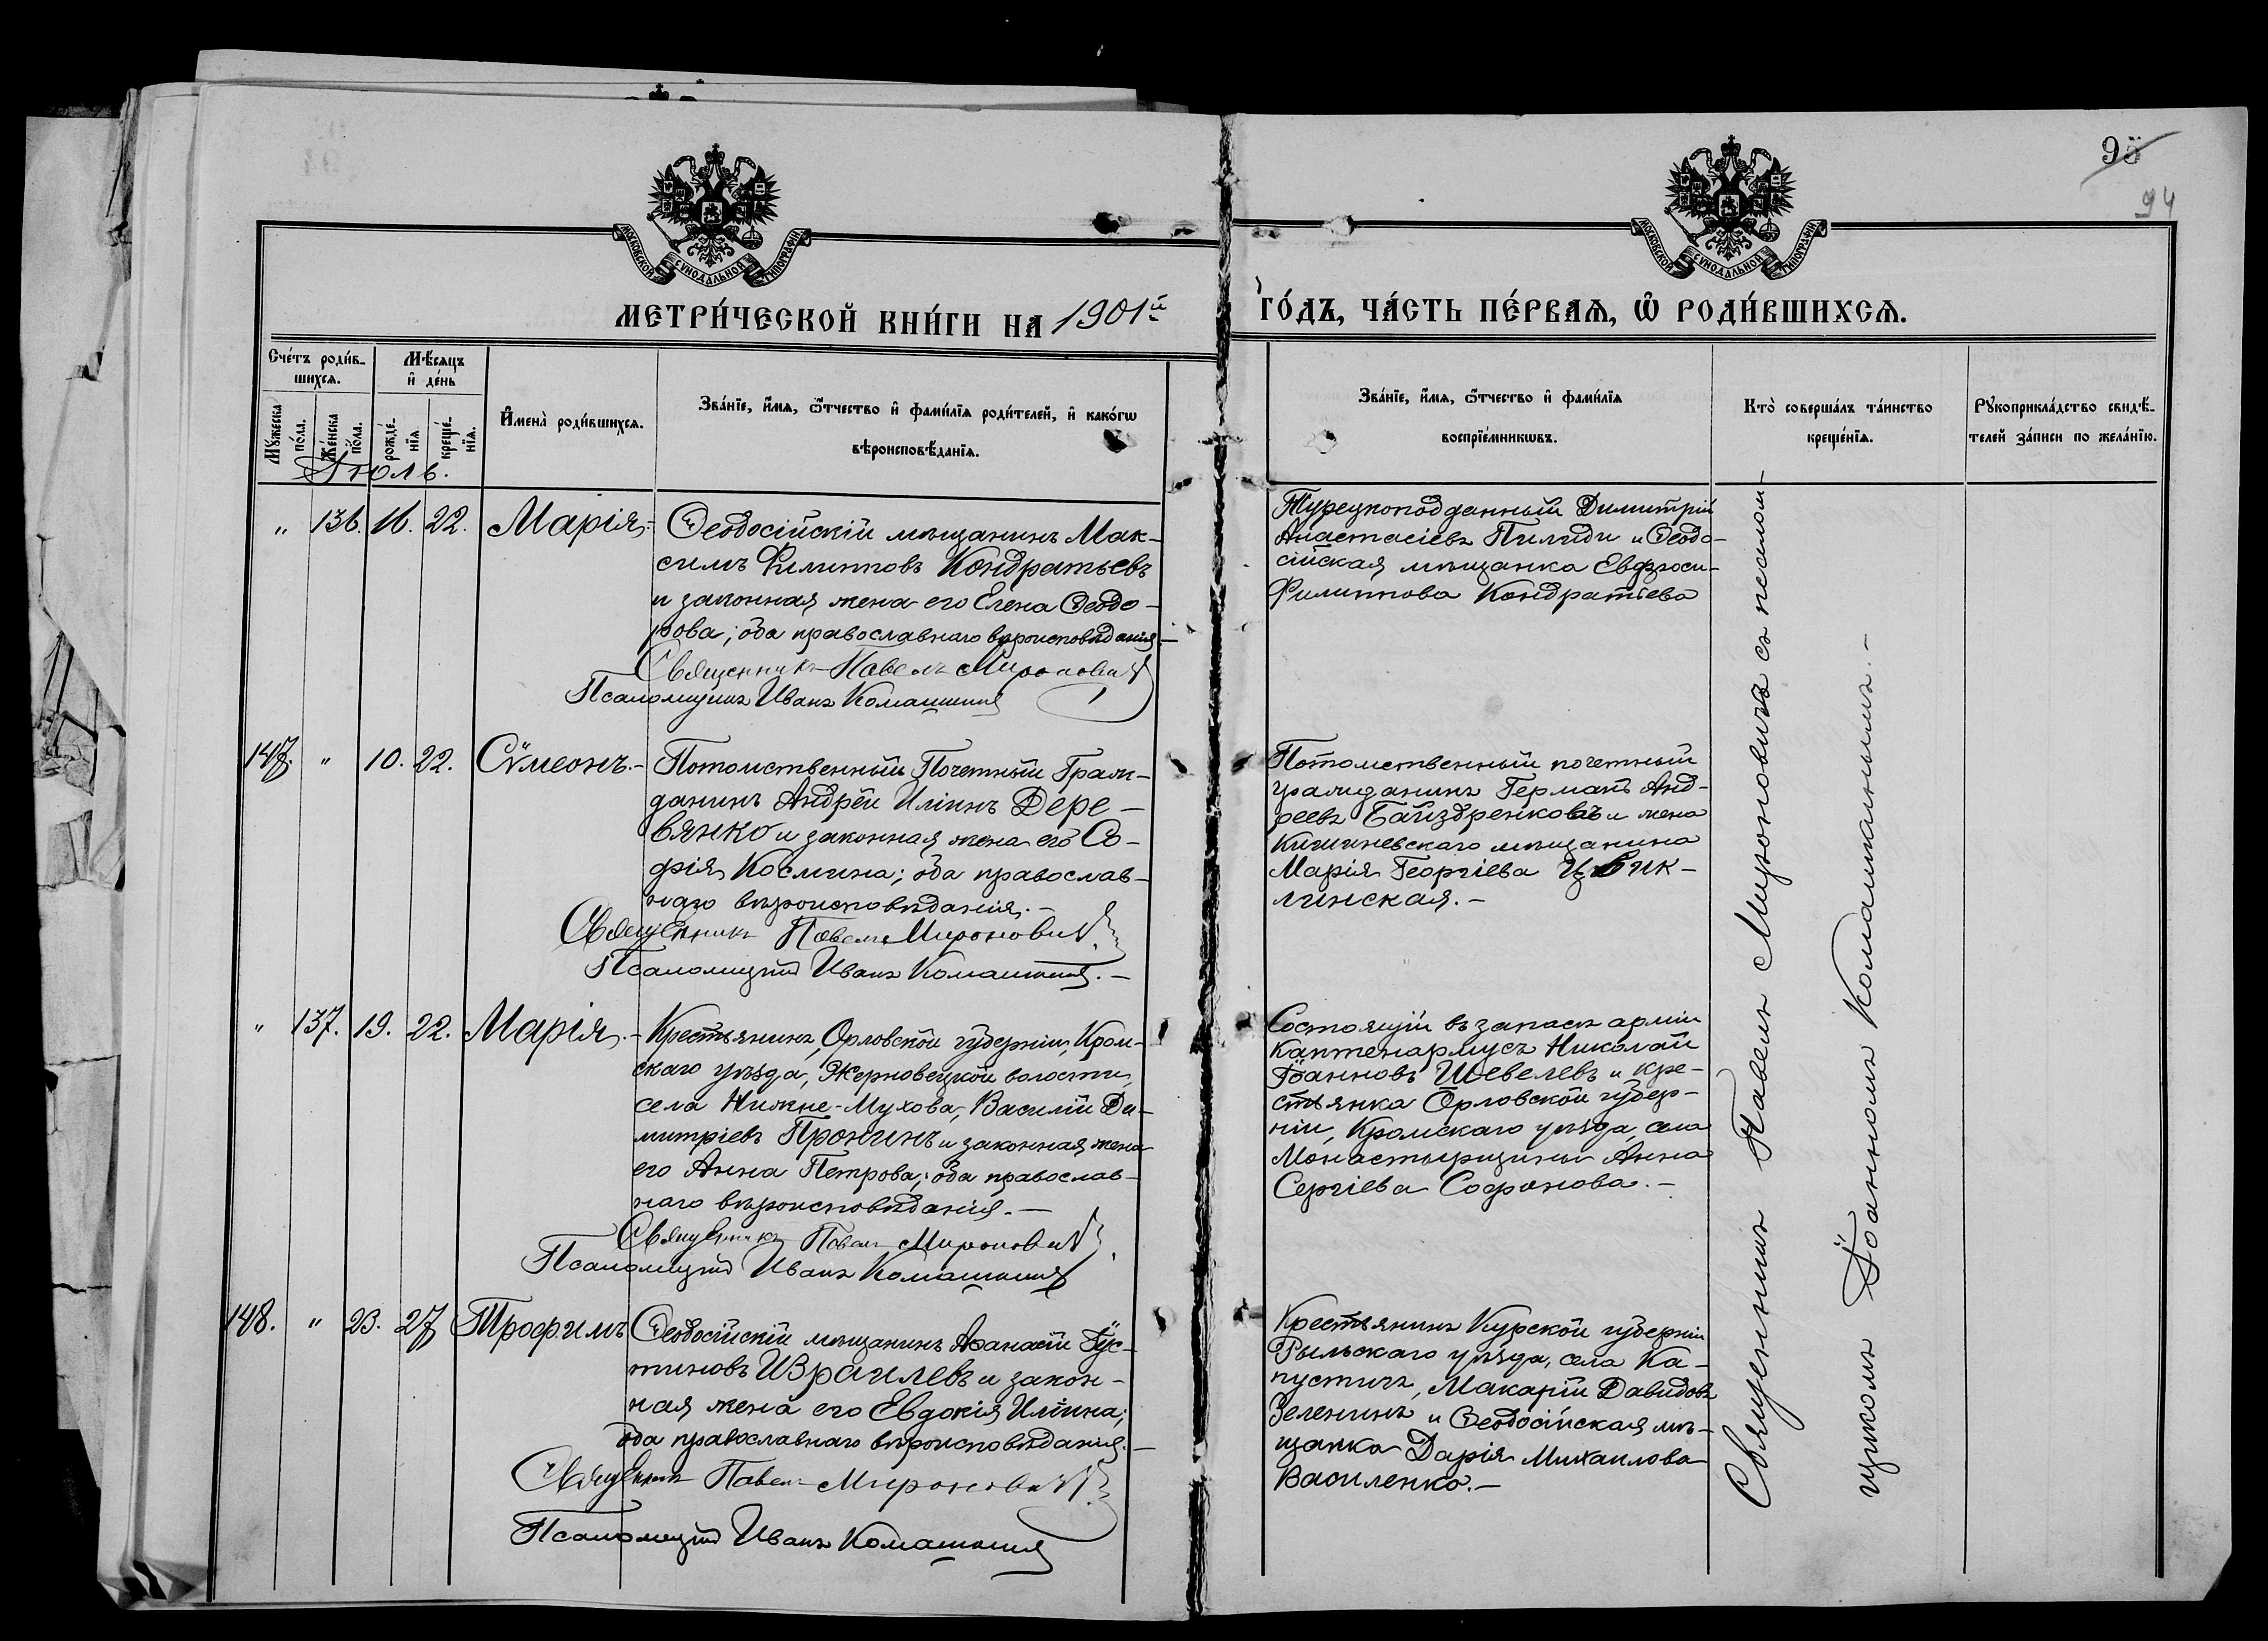 95
94
МОСКОВСКОЙ СУНОДАЛЬНОЙ ТИПОГРАФІИ
МОСКОВСКОЙ СУНОДАЛЬНОЙ ТИПОГРАФІИ
МЕТРИ́ЧЕСКОЙ КНИ́ГИ НА 1901й
ГО́ДЪ, ЧА́СТЬ ПЕ́РВАѦ, Ѡ҆ РОДИ́ВШИХСѦ.
Сче́тъ роди́в-
шихсѧ.
Мѣ́сѧцъ
и҆ де́нь
Мꙋ́жеска
по́ла.
Же́нска
по́ла.
рожде́-
нїѧ.
креще́-
нїѧ.
И҆мена̀ роди́вшихсѧ.
Зва́нїе, и҆́мѧ, ѻ҆́тчество и҆ фами́лїѧ роди́телей, и҆ како́гѡ
вѣроисповѣ́данїѧ.
Зва́нїе, и҆́мѧ, ѻ҆́тчество и҆ фами́лїѧ
воспрїе́мникѡвъ.
Кто̀ соверша́лъ та́инство
креще́нїѧ.
Рꙋкоприкла́дство свидѣ́-
телей за́писи по жела́нїю.
Іюль.
" 136. 16. 22. Марія.-
Ѳеодосійскій мѣщанинъ Мак-
симъ Филипповъ Кондратьевъ
и законная жена его Елена Ѳеодо-
рова; оба православнаго вѣроисповѣданія.-
Священникъ Павелъ Мироновичъ
Псаломщикъ Иванъ Комашинъ
Турецкоподданный Димитрій
Анастасіевъ Пилиди и Ѳеодо-
сійская мѣщанка Евфроси-
Филиппова Кондратіева
147. " 10. 22. Сѵмеонъ.-
Потомственный Почетный Граж-
данинъ Андрей Иліинъ Дере-
вянко и законная жена его Со-
фія Космина; оба православ-
наго вѣроисповѣданія.-
Священникъ Павелъ Мироновичъ
Псаломщикъ Иванъ Комашинъ.-
Потомственный почетный
гражданинъ Германъ Анд-
реевъ Байздренковъ и жена
Кишиневскаго мѣщанина
Марія Георгіева Цвик-
линская.-
" 137. 19. 22. Марія.-
Крестьянинъ, Орловской губерніи, Кром-
скаго уѣзда, Жерновецкой волости,
села Нижне-Мухова, Василій Ди-
митріевъ Пронинъ и законная жена
его Анна Петрова; оба православ-
наго вѣроисповѣданія.-
Священникъ Павелъ Мироновичъ
Псаломщикъ Иванъ Комашинъ
Состоящій въ запасѣ арміи
Каптенармусъ Николай
Іоанновъ Шевелевъ и кре-
стьянка Орловской губер-
ніи, Кромскаго уѣзда, села
Монастырщины Анна
Сергіева Софонова.-
148. " 23. 27 Трофимъ
Ѳеодосійскій мѣщанинъ Аѳанасій Іус-
тиновъ Израилевъ и закон-
ная жена его Евдокія Иліина;
оба православнаго вѣроисповѣданія.-
Священникъ Павелъ Мироновичъ
Псаломщикъ Иванъ Комашинъ
Крестьянинъ Курской губерніи
Рыльскаго уѣзда, села Ка-
пустичъ, Макарій Давидовъ
Зеленинъ и Ѳеодосійская мѣ-
щанка Дарія Михаилова
Василенко.-
Священникъ Павелъ Мироновичъ съ псалом-
щикомъ Іоанномъ Комашинымъ.-